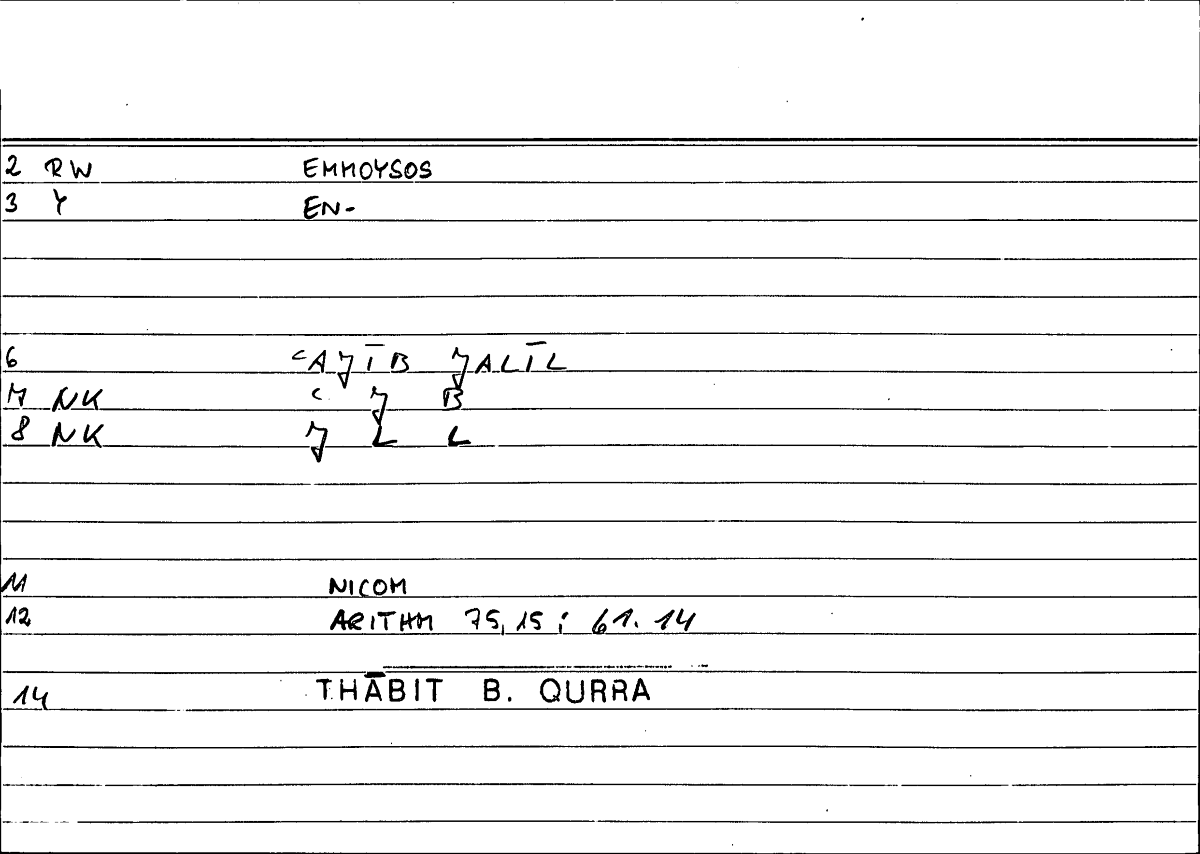 2 RW EMMOYSOS
3 Y EN-
6 ʿAJĪB JALĪL
7 NK ʿ J B
8 NK J L L
11 NICOM
12 ARITHM 75,15; 61.14
14 THĀBIT B. QURRA